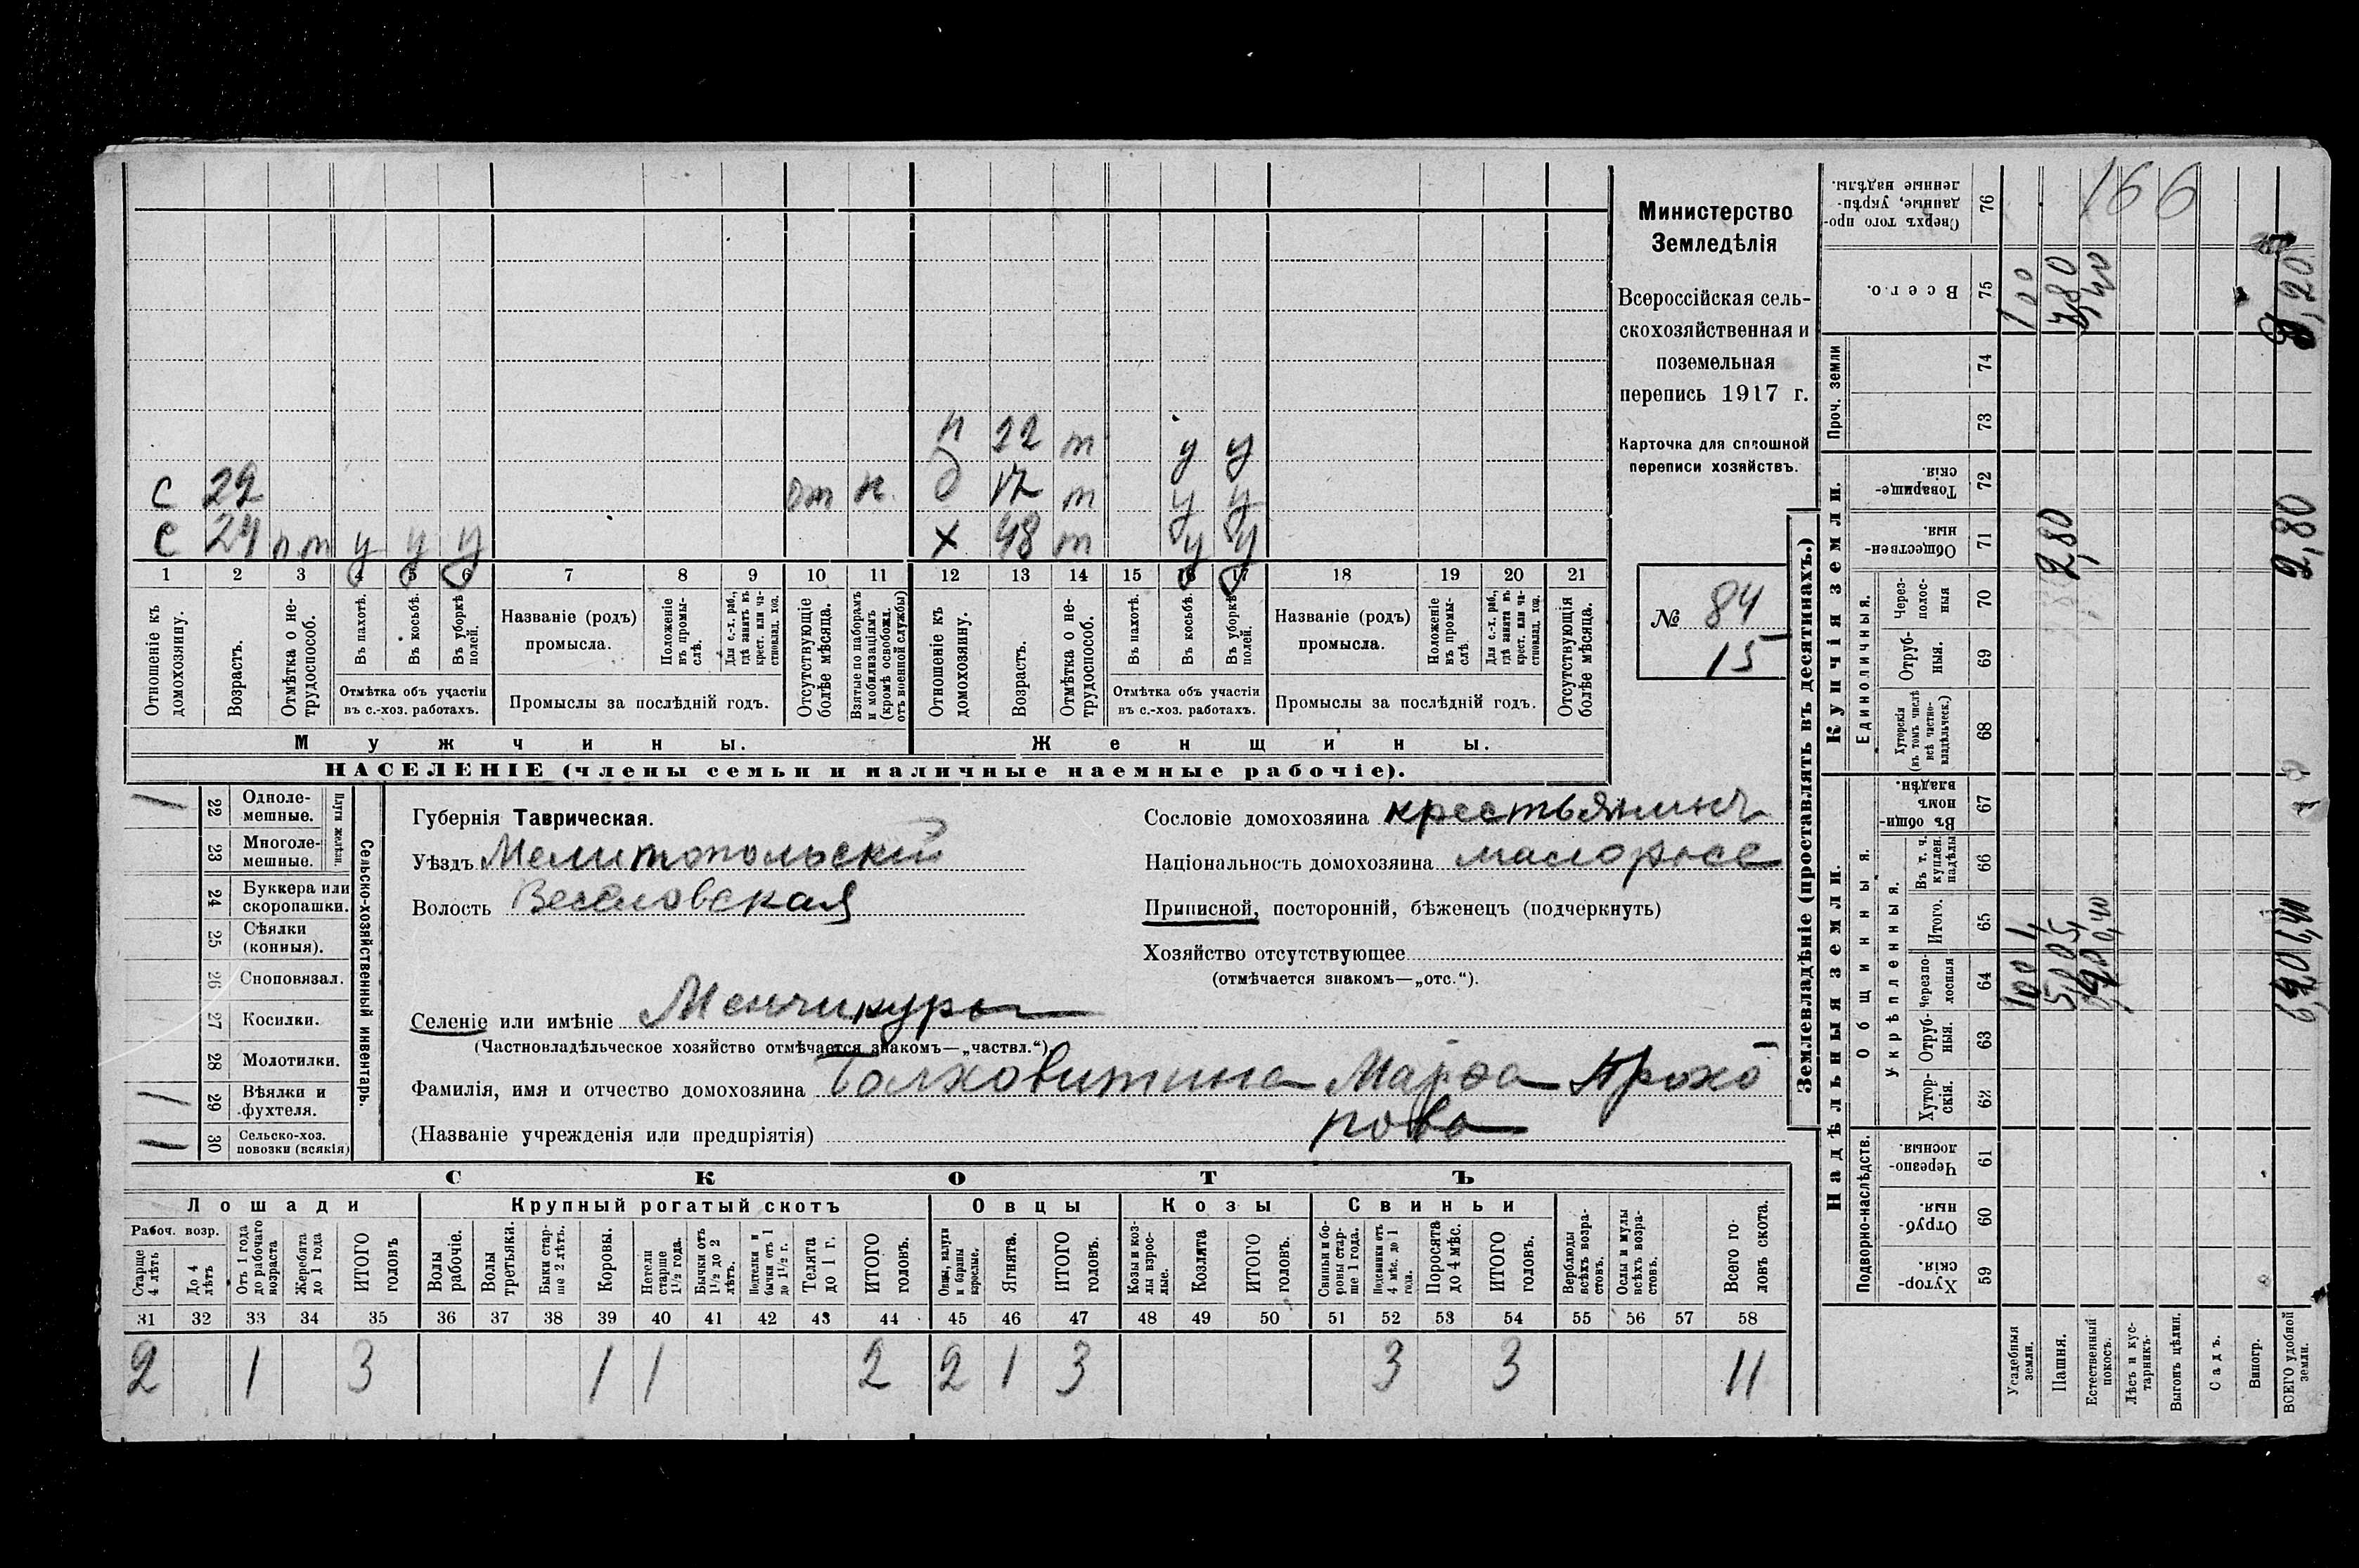 Министерство
Земледѣлія
Всероссійская сель-
скохозяйственная и
поземельная
перепись 1917 г.
Карточка для сплошной
переписи хозяйствъ.
№ 84
15
166
п 22 т у у
с 22 от н. д 17 т у у
с 24 п т у у у х 48 т у у
1 2 3 4 5 6 7 8 9 10 11 12 13 14 15 16 17 18 19 20 21
Отношеніе къ домохозяину.
Возрастъ.
Отмѣтка о не-трудоспособ.
Въ пахотѣ.
Въ косьбѣ.
Въ уборкѣ полей.
Отмѣтка объ участіи
въ с.-хоз. работахъ.
Названіе (родъ)
промысла.
Положеніе въ промы-слѣ.
Для с.-х. раб., гдѣ занятъ въ крест. или ча-стновлад. хоз.
Промыслы за послѣдній годъ.
Отсутствующіе болѣе мѣсяца.
Взятые по наборамъ и мобилизаціямъ (кромѣ освобожд. отъ военной службы)
Отношеніе къ домохозяину.
Возрастъ.
Отмѣтка о не-трудоспособ.
Въ пахотѣ.
Въ косьбѣ.
Въ уборкѣ полей.
Отмѣтка объ участіи
въ с.-хоз. работахъ.
Названіе (родъ)
промысла.
Положеніе въ промы-слѣ.
Для с.-х. раб., гдѣ занята въ крест. или ча-стновлад. хоз.
Промыслы за послѣдній годъ.
Отсутствующія болѣе мѣсяца.
Мужчины. Женщины.
НАСЕЛЕНІЕ (члены семьи и наличные наемные рабочіе).
Сельско-хозяйственный инвентарь.
Плуги желѣзн.
1 22 Одноле-мешные.
23 Многоле-мешные.
24 Буккера или скоропашки.
25 Сѣялки (конныя).
26 Сноповязал.
27 Косилки.
28 Молотилки.
1 29 Вѣялки и фухтеля.
1 30 Сельско-хоз. повозки (всякія)
Губернія Таврическая.
Уѣздъ Мелитопольскій
Волость Веселовская
Сословіе домохозяина крестьянинъ
Національность домохозяина малоросс
Приписной, посторонній, бѣженецъ (подчеркнуть)
Хозяйство отсутствующее
(отмѣчается знакомъ—„отс.“).
Селеніе или имѣніе Менчикуры
(Частновладѣльческое хозяйство отмѣчается знакомъ—„частвл.“)
Фамилія, имя и отчество домохозяина Болховитина Марфа Прохо
рова
(Названіе учрежденія или предпріятія)
СКОТЪ
Лошади Крупный рогатый скотъ Овцы Козы Свиньи
Рабоч. возр.
Старше 4 лѣтъ
До 4 лѣтъ
Отъ 1 года до рабочаго возраста
Жеребята до 1 года
ИТОГО головъ
Волы рабочіе.
Волы третьяки.
Быки стар-ше 2 лѣтъ.
Коровы.
Нетели старше 1½ года.
Бычки отъ 1½ до 2 лѣтъ.
Подтелки и бычки отъ 1 до 1½ г.
Телята до 1 г.
ИТОГО головъ.
Овцы, валухи и бараны взрослые.
Ягнята.
ИТОГО головъ.
Козы и коз-лы взрос-лые.
Козлята
ИТОГО головъ.
Свиньи и бо-ровы стар-ше 1 года.
Подсвинки отъ 4 мѣс. до 1 года.
Поросята до 4 мѣс.
ИТОГО головъ.
Верблюды всѣхъ возра-стовъ.
Ослы и мулы всѣхъ возра-стовъ.
Всего го-ловъ скота.
31 32 33 34 35 36 37 38 39 40 41 42 43 44 45 46 47 48 49 50 51 52 53 54 55 56 57 58
2 1 3 1 1 2 2 1 3 3 3 11
Землевладѣніе (проставлять въ десятинахъ.)
Надѣльныя земли. Купчія земли. Проч. земли
Подворно-наслѣдств. Общинныя. Единоличныя.
Укрѣпленныя.
Хутор-скія. 59
Отруб-ныя. 60
Черезпо-лосныя 61
Хутор-скія. 62
Отруб-ныя. 63
Черезпо-лосныя 64
Итого. 65
Въ т. ч. куплен. надѣлы 66
Въ общин-номъ владѣн. 67
Хуторскія (въ томъ числѣ всѣ частно-владѣльческ.) 68
Отруб-ныя. 69
Через-полос-ныя 70
Обществен-ныя. 71
Товарище-скія. 72
73
74
Всего. 75
Сверхъ того про-данные, укрѣп-ленные надѣлы. 76
Усадебныя земли. 100 1 100
Пашня. 2,80
Естественный покосъ. 0,40
Лѣсъ и кус-тарникъ.
Выгонъ цѣлин.
Садъ.
Виногр.
ВСЕГО удобной земли. 6,40 2,80